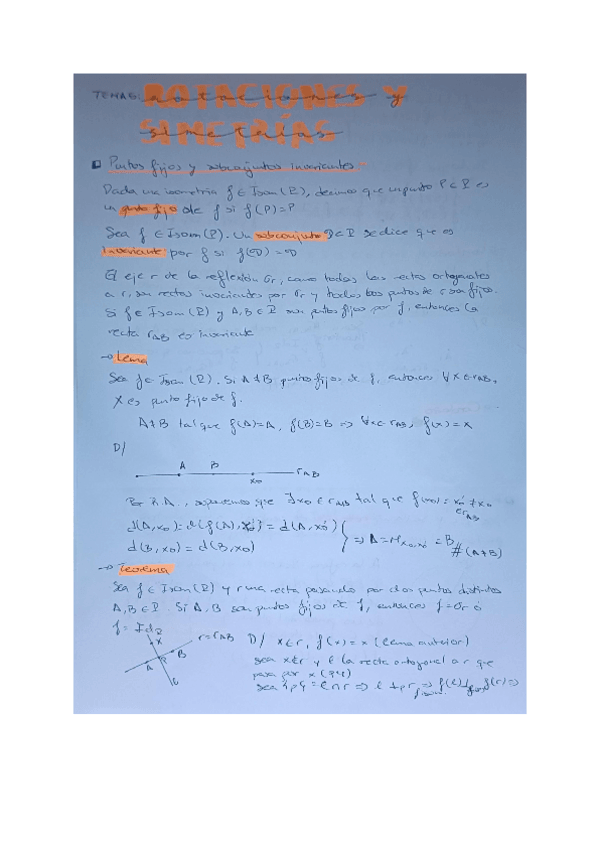 TEMA 3: ROTACIONES Y
SIMETRÍAS
Puntos fijos y subconjuntos invariantes
Dada una isometría f ∈ Isom(P), decimos que un punto P ∈ P es
un punto fijo de f si f(P)=P
Sea f ∈ Isom(P). Un subconjunto D⊂P se dice que es
invariante por f si f(D)=D
El eje r de la reflexión σr, como todas las rectas ortogonales
a r, son rectas invariantes por σr y todos los puntos de r son fijos.
Si f ∈ Isom(P) y A,B ∈ P son puntos fijos por f, entonces la
recta rAB es invariante
→ Lema
Sea f ∈ Isom(P). Si A≠B puntos fijos de f, entonces ∀x∈rAB,
x es punto fijo de f.
A≠B tal que f(A)=A, f(B)=B ⇒ ∀x∈rAB, f(x)=x
D/
A B x0 rAB
Por R.A., suponemos que ∃x0∈rAB tal que f(x0)=x0'≠x0
∈rAB
d(A,x0)=d(f(A),x0')=d(A,x0')
d(B,x0)=d(B,x0') ⇒ A=Mx0,x0'=B # (A≠B)
→ Teorema
Sea f∈Isom(P) y r una recta pasando por dos puntos distintos
A,B∈P. Si A,B son puntos fijos de f, entonces f=σr ó
f=IdP
x A B r=rAB l
D/ x∈r, f(x)=x (lema anterior)
sea x∉r y l la recta ortogonal a r que
pasa por x
sea {p}=l∩r ⇒ l⊥r ⇒ f(l)⊥f(r) ⇒